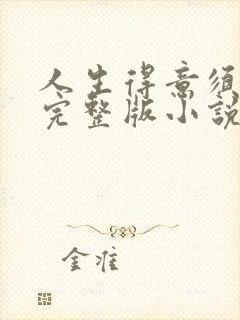 人生得意须
完整版小説
金淮